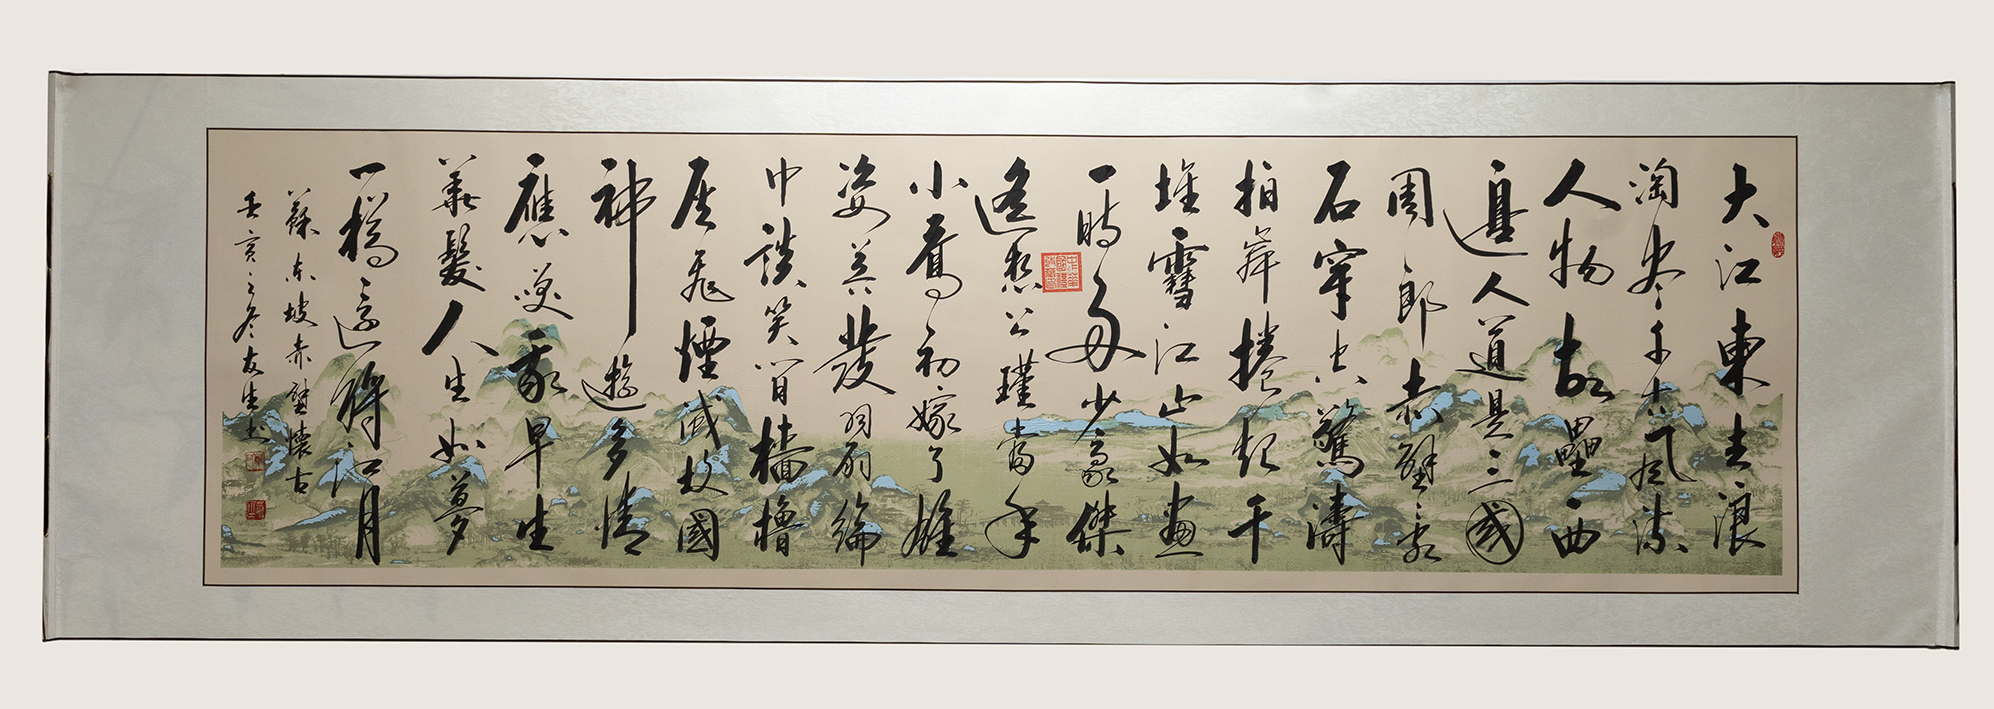 大江東去浪
淘盡千古風流
人物故壘西
邊人道是三國
周郎赤壁亂
石穿空驚濤
拍岸捲起千
堆雪江山如畫
一時多少豪傑
遙想公瑾當年
小喬初嫁了雄
姿英發羽扇綸
巾談笑間檣櫓
灰飛煙滅故國
神遊多情
應笑我早生
華髮人生如夢
一樽還酹江月
蘇东坡赤壁懷古
壬寅之冬友生书